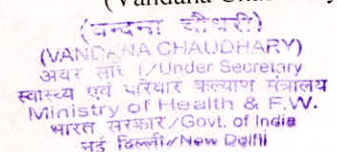 (Vandana Chaudhary
(वन्दना चौधरी)
(VANDANA CHAUDHARY)
अवर /Under Secretary
स्वास्थ्य एवं परिवार कल्याण मंत्रालय
Ministry of Health & F.W.
भारत सरकार/Govt. of India
नई दिल्ली/New Delhi